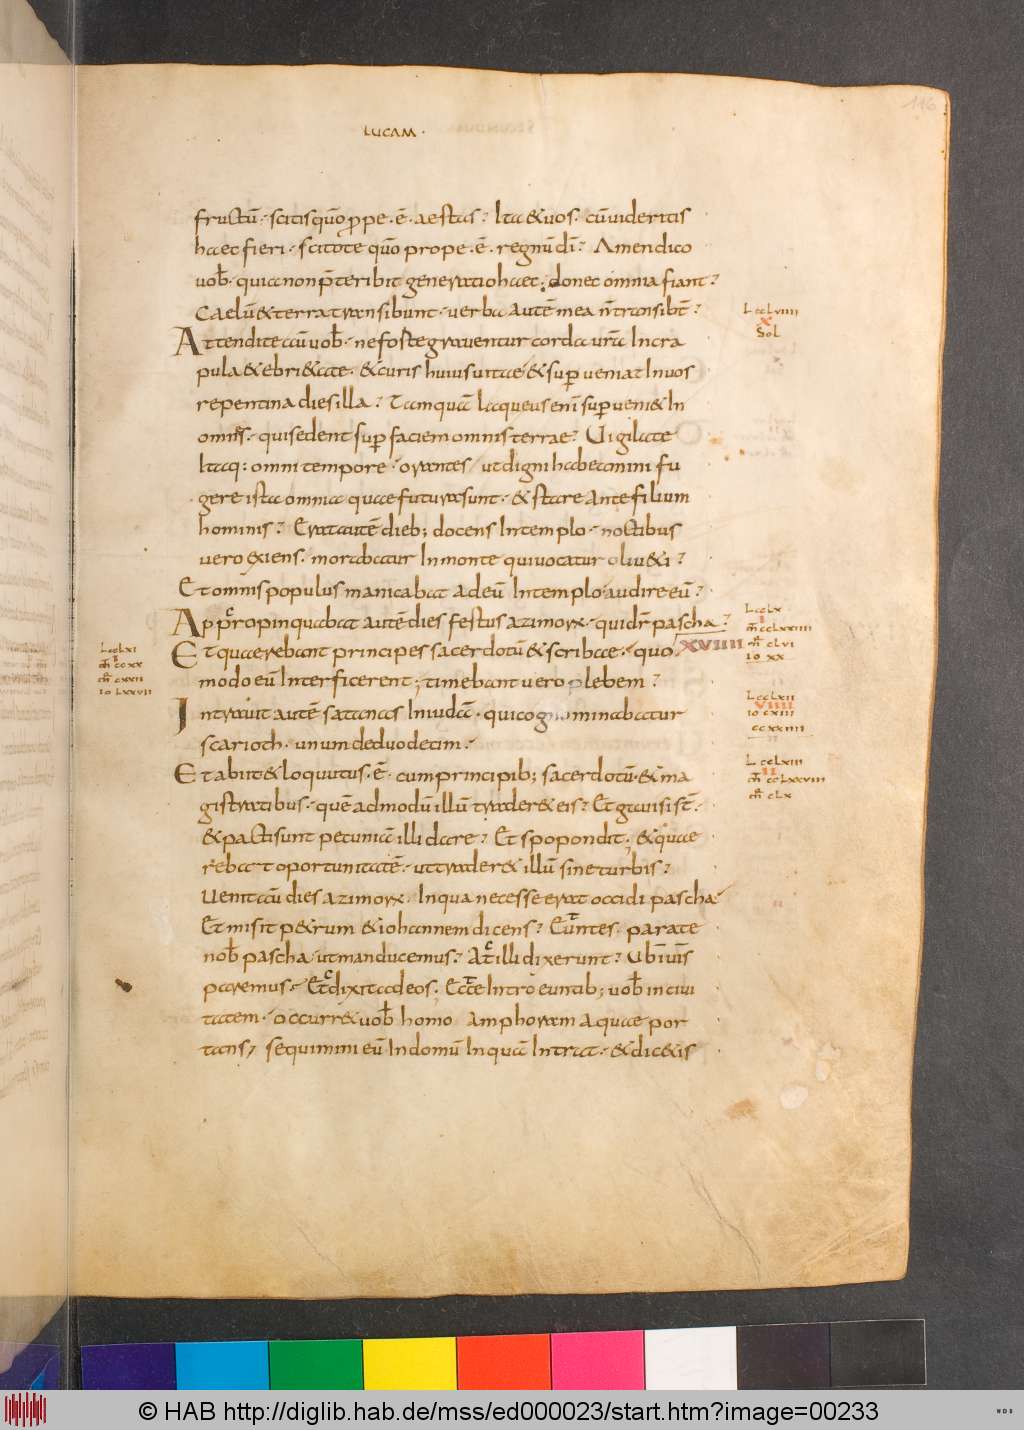 116
LUCAM·
fructū· scitis quō ꝓpe·ē· aestas? Ita & uos· cū uideritis
haec fieri· scitote quō prope·ē· regnū dī? Amen dico
uob̄· quia non p̄teribit generatio haec; donec omnia fiant?
Caelū & terra transibunt· uerba autē mea n̄ transibt̄?
Attendite autē uob̄· ne forte grauentur corda ur̄a In cra
pula & ebri&ate· & curis huius uitae & suꝑueniat In uos
repentina dies illa? Tamquā laqueus enī suꝑueni& In
omn̄s· qui sedent suꝑ faciem omnis terrae? Uigilate
Itaq: omni tempore· orantes/ ut digni habeamini fu
gere ista omnia quae futura sunt· & stare ante filium
hominis? Erat autē dieb; docens In templo· noctibus
uero exiens· morabatur In monte qui uocatur oliu&i?
Et omnis populus manicabat ad eū In templo audire eū?
Appropinquabat autē dies festus azimoꝝ· qui dr̄ pascha?
Et quaerebant principes sacerdotū & scribae· quo
XVIIII
modo eū Interficerent; timebant uero plebem?
Intrauit autē satanas In iudā· qui cognominabatur
scarioth· unum de duodecim·
Et abiit & loquutus·ē· cum principib; sacerdotū· & ma
gistratibus· quē admodū illū trader& eis? Et gauisi st̄·
& pacti sunt pecuniā illi dare? Et spopondit; & quae
rebat oportunitatē· ut trader& illū sine turbis?
Uenit autē dies azimoꝝ· In qua necesse erat occidi pascha
Et misit p&rum & iohannem dicens? Euntes· parate
nob̄ pascha· ut manducemus? At illi dixerunt? Ubi uis
paremus· Et dixit ad eos· Ecce Introeuntib; uob̄ in ciui
tatem· occurr& uob̄ homo Amphoram aquae por
tans/ sequimini eū In domū In quā Intrat· & dic&is
L ccLviiii
X
Sol
L ccLxi
I
m̄ ccxx
m̄ cxxii
io Lxxvii
L ccLx
I
m̄ ccLxxiiii
m̄ cLvi
io xx
L ccLxii
VIIII
io cxiii
ccxxiiii
L ccLxiii
II
m̄ ccLxxviii
m̄ cLx
© HAB http://diglib.hab.de/mss/ed000023/start.htm?image=00233
WDB